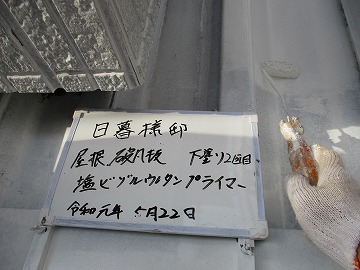 日暮様邸
屋根 破風板 下塗り2回目
塩ビゾルウレタンプライマー
令和元年 5月22日